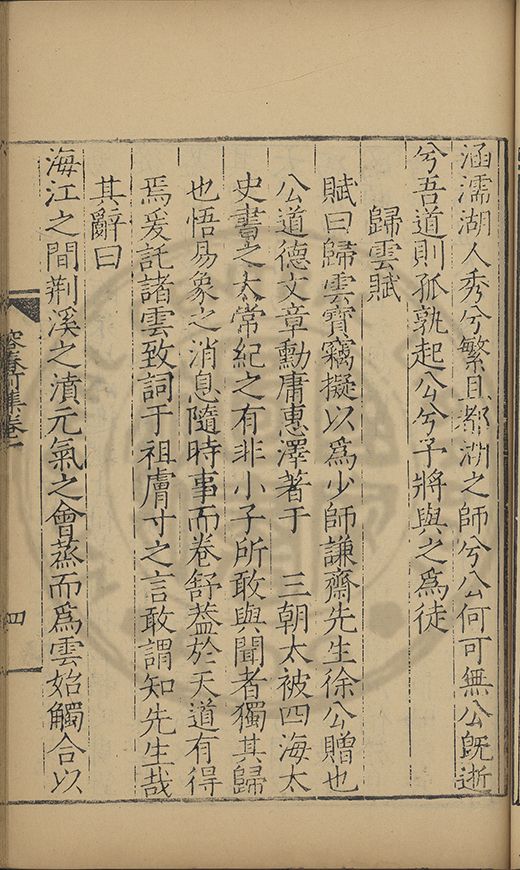 涵濡湖人秀兮繁且都湖之師兮公何可無公既逝
兮吾道則孤孰起公兮予將與之爲徒
歸雲賦
賦曰歸雲實竊擬以爲少師謙齋先生徐公贈也
公道德文章勳庸惠澤著于 三朝太被四海太
史書之太常紀之有非小子所敢與聞者獨其歸
也悟易象之消息隨時事而卷舒葢於天道有得
焉爰託諸雲致詞于祖膚寸之言敢謂知先生哉
其辭曰
海江之間荆溪之濆元氣之會蒸而爲雲始觸合以
容春前集卷一
四